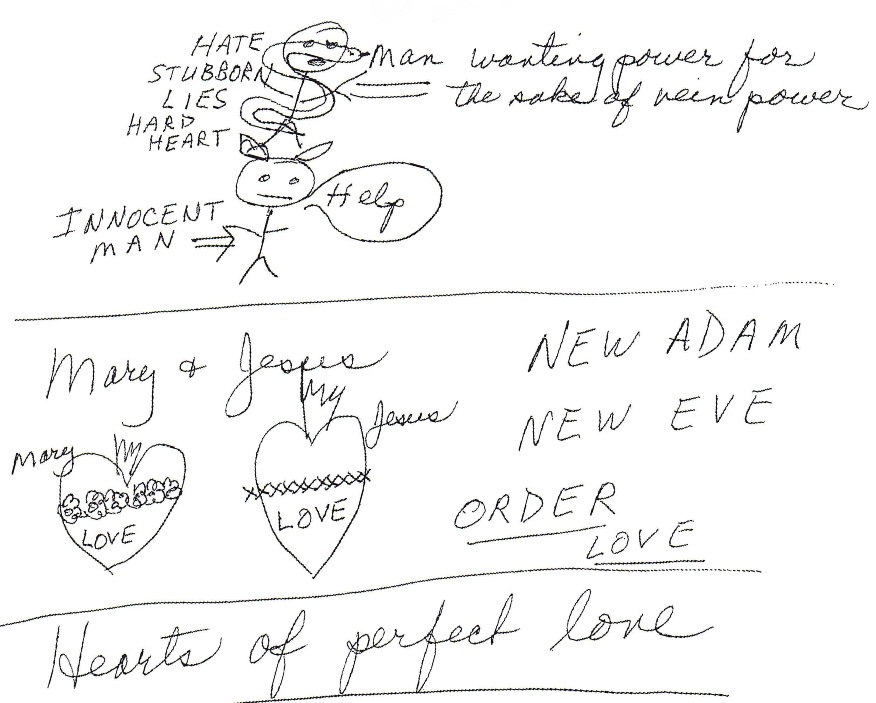 HATE
STUBBORN
LIES
HARD
HEART
Man wanting power for
the sake of vein power
INNOCENT
MAN
Help
Mary & Jesus
NEW ADAM
NEW EVE
Mary
LOVE
Jesus
LOVE
ORDER
LOVE
Hearts of perfect love